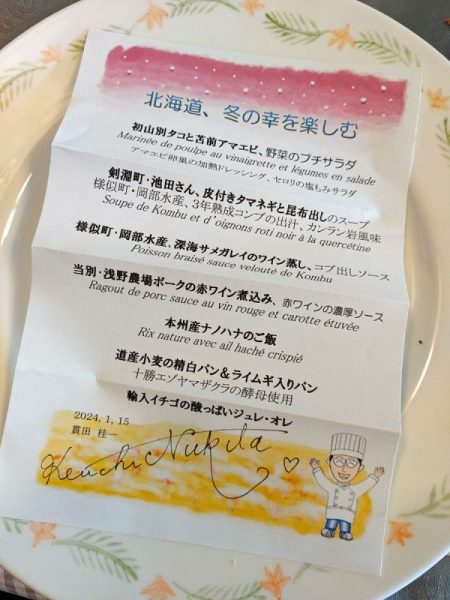 北海道、冬の幸を楽しむ
初山別タコと苫前アマエビ、野菜のプチサラダ
Marinée de poulpe au vinaigrette et légumes en salade
アマエビ卵巣の加熱ドレッシング、セロリの塩もみサラダ
剣淵町・池田さん、皮付きタマネギと昆布出しのスープ
様似町・岡部水産、3年熟成コンブの出汁、カンラン岩風味
Soupe de Kombu et d'oignons roti noir à la quercétine
様似町・岡部水産、深海サメガレイのワイン蒸し、コブ出しソース
Poisson braisé sauce velouté de Kombu
当別・浅野農場ポークの赤ワイン煮込み、赤ワインの濃厚ソース
Ragout de porc sauce au vin rouge et carotte étuvée
本州産ナノハナのご飯
Rix nature avec ail haché crispié
道産小麦の精白パン＆ライムギ入りパン
十勝エゾヤマザクラの酵母使用
輸入イチゴの酸っぱいジュレ・オレ
2024, 1, 15
貫田 桂一
Keiichi Nukita